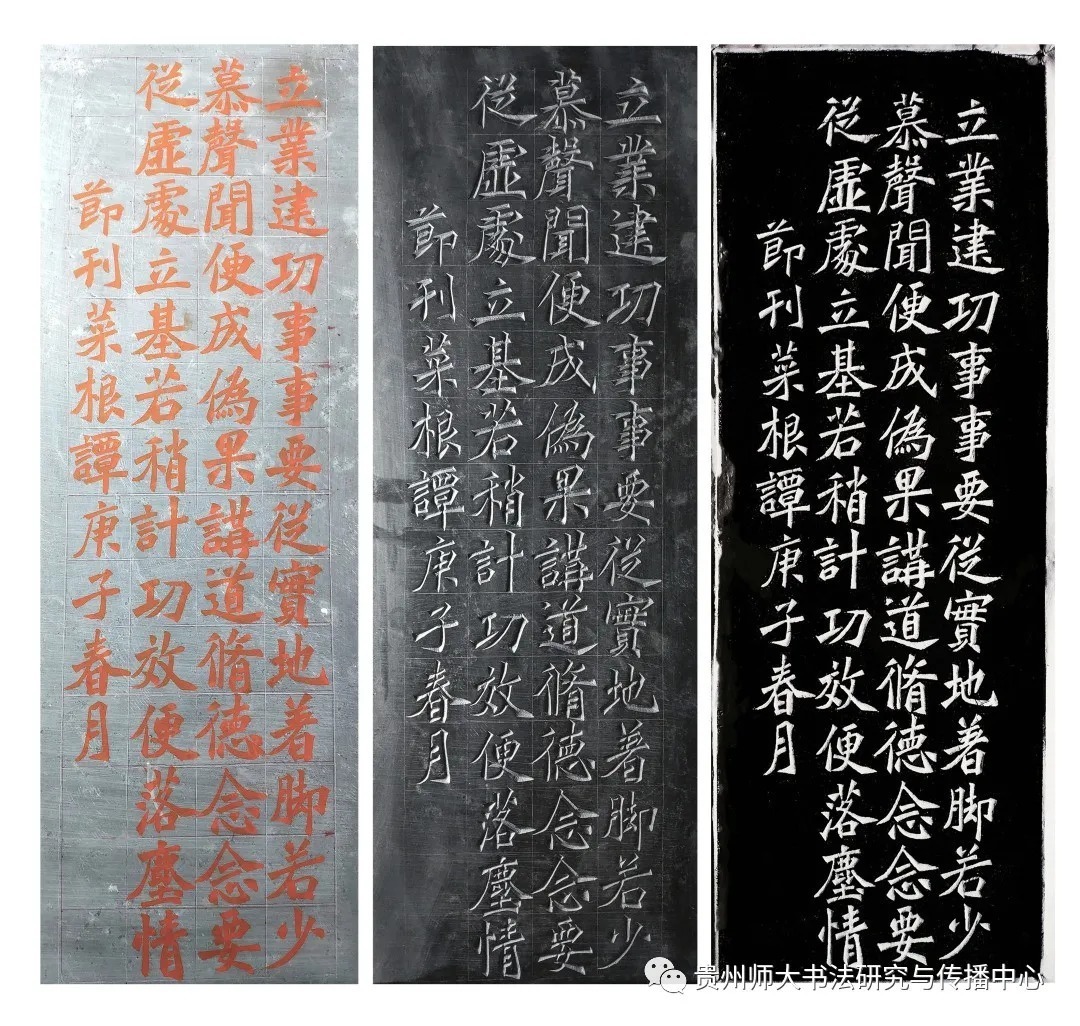 立業建功事事要從實地著脚若少
慕聲聞便成偽果講道脩德念念要
從虛處立基若稍計功效便落塵情
節刊菜根譚庚子春月
立業建功事事要從實地著脚若少
慕聲聞便成偽果講道脩德念念要
從虛處立基若稍計功效便落塵情
節刊菜根譚庚子春月
立業建功事事要從實地著脚若少
慕聲聞便成偽果講道脩德念念要
從虛處立基若稍計功效便落塵情
節刊菜根譚庚子春月
贵州师大书法研究与传播中心